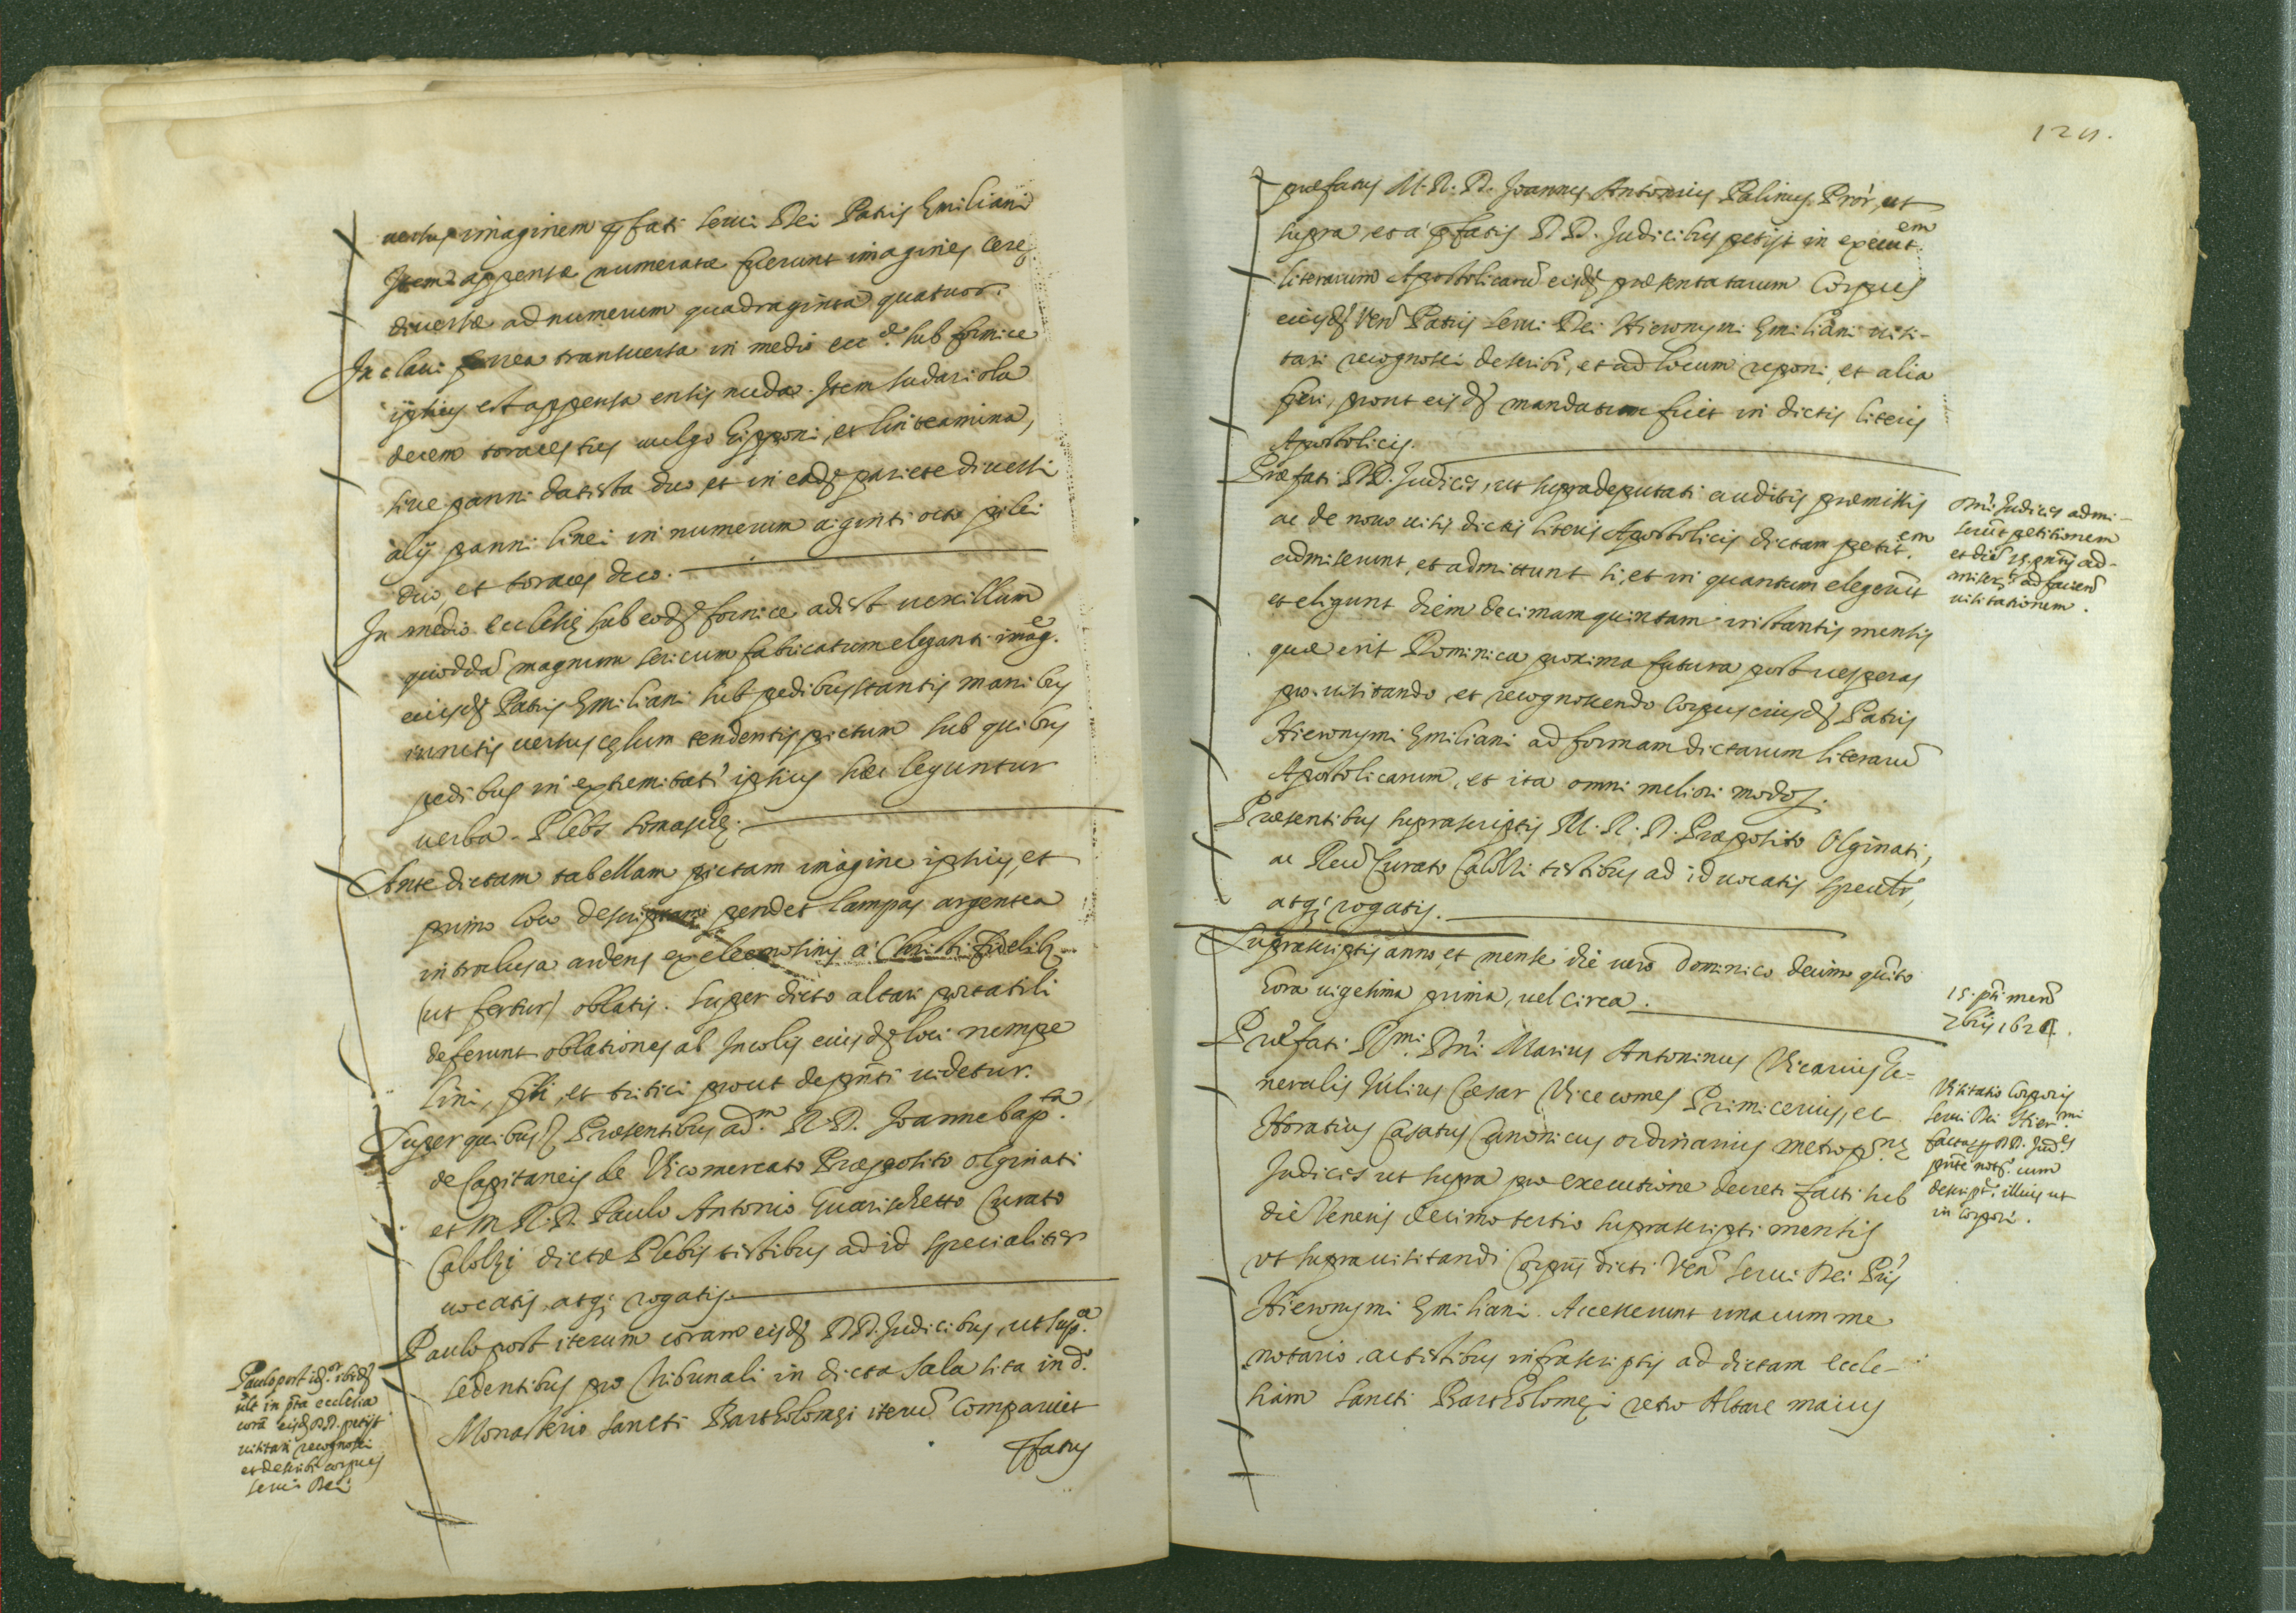 uersus imaginem p̄fati serui Dei Patris Emiliani
Item appensæ numeratæ fuerunt imagines cereę
diuersæ ad numerum quadraginta quatuor.
In claui ferrea transuersa in medio ecc.ę sub fornice
ipsius est appensa ensis nuda. Item sudariola
decem toraces tres uulgo hipponi, et linteamina,
siue panni de tista duo, et in eadē pariete diuersi
alij panni linei in numerum uiginti octo pilei
duo, et toraces duo.
In medio ecclesię sub eodē fornice adest uexillum
quoddā magnum sericum fabricatum eleganti imag.ē
eiusdē Patris Emiliani sub pedibus stantis manibus
iunctis uersus cęlum tendentis pictum sub quibus
pedibus in extremitati ipsius hæc leguntur
uerba. Plebs somaschę.
Ante dictam tabellam pictam imagine ipsius, et
primo loco descriptam pendet lampas argentea
introclusa ardens ex eleemosinis a Christi fidelib.
(ut fertur) oblatis. Super dicto altari portatili
deferunt oblationes ab Incolis eiusdē loci nempe
lini, fili, et tritici prout de pn̄ti uidetur.
Super quibus Præsentibus ad.m R. D. Joanne bap.ta
de Capitaneis de Vicomercato Præposito olginati
et M. R. D. Paulo Antonio Guarischetto Curato
Calolzij dictæ Plebis testibus ad id specialiter
uocatis, atq; rogatis.
Paulo post iterum coram eisdē DD. Judicibus, ut sup.a
sedentibus pro tribunali in dicta sala sita in d.o
Monasterio sancti Bartholomęi iterū comparuit
p̄fatus
Paulo post idē
ult in p̄ta ecclesia
corā eisdē DD. petijt
uisitari recognosci
et describi corpus
serui Dei
121.
præfatus M. R. D. Joannes Antonius Palinus Pror, ut
supra, et a p̄fatis DD. Judicibus petijt in execut.em
literarum Apostolicarū eisdē præsentatarum Corpus
eiusdē Ven Patris serui Dei Hieronymi Emiliani uisi-
tari recognosci describi, et ad locum reponi, et alia
fieri, prout eisdē mandatum fuit in dictis literis
Apostolicis.
Præfati DD. Judices, ut supra deputati auditis præmissis
ac de nouo uisis dictis literis Apostolicis dictam petit.em
admiserunt, et admittunt si, et in quantum elegerūt
et eligunt diem decimamquintam instantis mensis
quæ erit Dominica proxima futura post uesperas
pro uisitando et recognoscendo corpus eiusdē Patris
Hieronymi Emiliani ad formam dictarum literarū
Apostolicarum, et ita omni meliori modo.
Præsentibus suprascriptis M. R. D. Præposito Olginati,
ac Reu Curato Calolzi testibus ad id uocatis specialr,
atq; rogatis.
Suprascriptis anno, et mense die uero Dominico decimo quīto
hora uigesima prima, uel circa.
Præfati R.mi DD.ni Marius Antoninus Vicarius Ge-
neralis Julius Cæsar Vicecomes Primicerius, et
Horatius Casatus Canonicus ordinarius metrop.nę
Judices ut supra pro executione decreti facti sub
die Veneris decimo tertio suprascripti mensis
ut supra uisitandi Corpus dicti Ven serui Dei Pris
Hieronymi Emiliani. Accesserunt una cum me
notario, ac testibus infrascriptis ad dictam eccle-
siam sancti Bartholomęi retro Altare maius
Dni Judices admi-
serūt petitionem
et diē 15. pntis ad-
ad faciend
uisitationem.
15. pnti mens
7bris 1624.
Visitatio Corporis
serui Dei Hier.mi
facta p DD. Jud.es
pnte not. cum
descript. illius ut
in corpori.